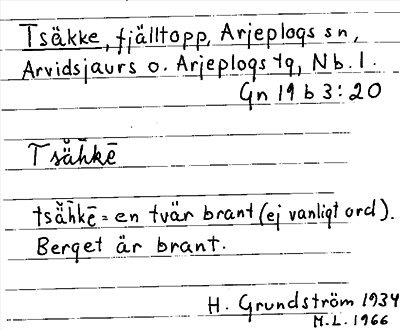 Tsäkke, fjälltopp, Arjeplogs sn,
Arvidsjaurs o. Arjeplogs tg, Nb. l.
Gn 19 b 3:20
Tsä̌hkē
tsä̌hkē = en tvär brant (ej vanligt ord).
Berget är brant.
H. Grundström 1934
M.L. 1966